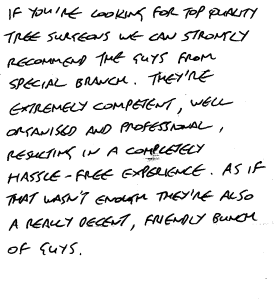 IF YOU'RE LOOKING FOR TOP QUALITY
TREE SURGEONS WE CAN STRONGLY
RECOMMEND THE GUYS FROM
SPECIAL BRANCH. THEY'RE
EXTREMELY COMPETENT, WELL
ORGANISED AND PROFESSIONAL,
RESULTING IN A COMPLETELY
HASSLE-FREE EXPERIENCE. AS IF
THAT WASN'T ENOUGH THEY'RE ALSO
A REALLY DECENT, FRIENDLY BUNCH
OF GUYS.